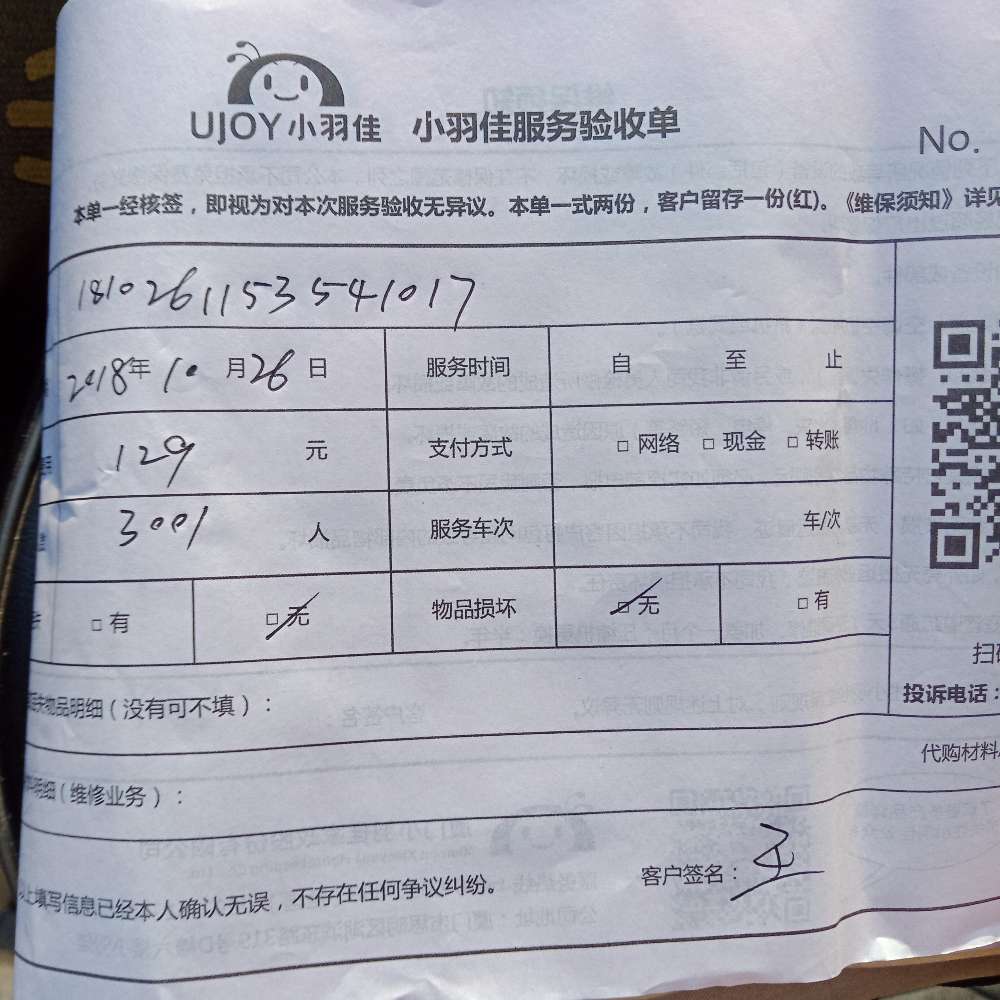 UJOY小羽佳 小羽佳服务验收单
No.
本单一经核签，即视为对本次服务验收无异议。本单一式两份，客户留存一份(红)。《维保须知》详见
1810261153541017
2018年10月26日 服务时间 自 至 止
129 元 支付方式 □ 网络 □ 现金 □ 转账
3001 人 服务车次 车/次
□ 有 □ 无 物品损坏 □ 无 □ 有
物品明细（没有可不填）：
投诉电话：
代购材料
明细（维修业务）：
客户签名：王
上填写信息已经本人确认无误，不存在任何争议纠纷。